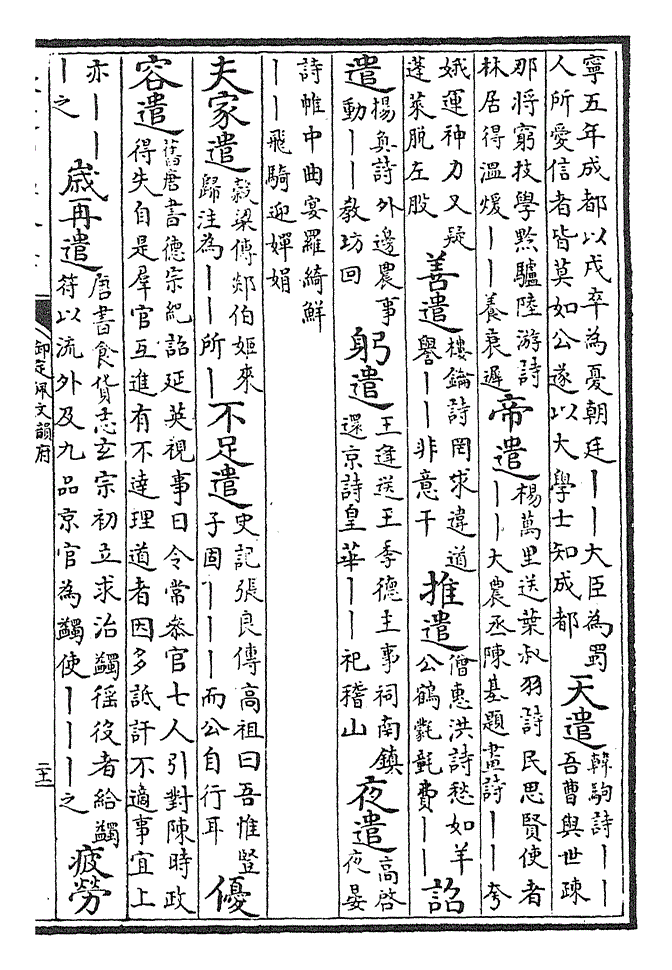 寧五年成都以戍卒為憂朝廷丨丨大臣為蜀
人所愛信者皆莫如公遂以大學士知成都
天遣
韓駒詩丨丨
吾曹與世疎
那將窮技學黔驢陸游詩
林居得溫煖丨丨養衰遲
帝遣
楊萬里送葉叔羽詩民思賢使者
丨丨大農丞陳基題畫詩丨丨夸
娥運神力又疑
蓬萊脱左股
善遣
樓鑰詩罔求違道
譽丨丨非意干
推遣
僧惠洪詩愁如羊
公鶴氋氃費丨丨
詔
遣
楊奐詩外邊農事
動丨丨教坊回
躬遣
王逢送王季德主事祠南鎮
還京詩皇華丨丨祀稽山
夜遣
高啓
夜晏
詩帷中曲宴羅綺鮮
丨丨飛騎迎嬋娟
夫家遣
穀梁傳郯伯姬來
歸注為丨丨所丨
不足遣
史記張良傳高祖曰吾惟豎
子固丨丨丨而公自行耳
優
容遣
舊唐書德宗紀詔延英視事日令常參官七人引對陳時政
得失自是羣官互進有不達理道者因多詆訐不適事宜上
亦丨丨
丨之
歲再遣
唐書食貨志玄宗初立求治蠲徭役者給蠲
符以流外及九品京官為蠲使丨丨丨之
疲勞
御定佩文韻府